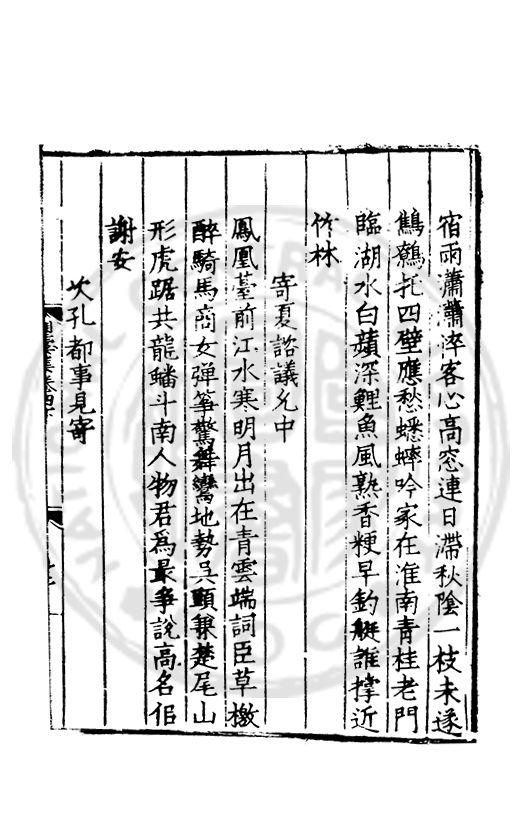 宿雨瀟瀟滯客心高窓連日滯秋陰一枝未遂
鷦鷯托四壁應愁蟋蟀吟家在淮南青桂老門
臨湖水白蘋深鯉魚風熟香粳早釣艇誰撑近
竹林
寄夏諮議允中
鳳凰臺前江水寒明月出在青雲端詞臣草檄
醉騎馬商女弹箏驚舞鸞地勢吳頭兼楚尾山
形虎踞共龍蟠斗南人物君爲最爭說高名佀
謝安
次孔都事見寄